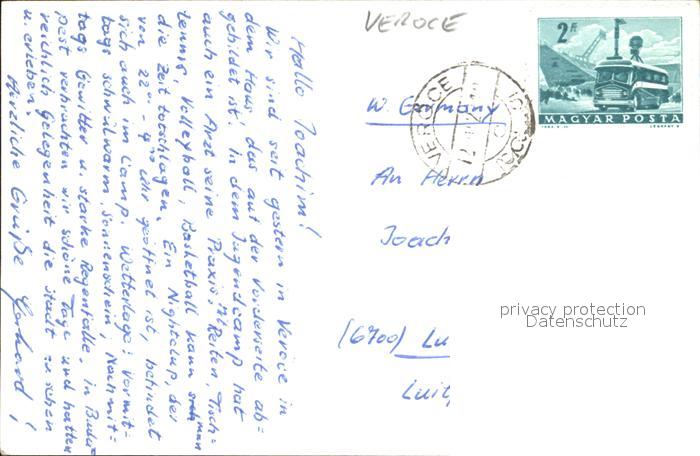 VEROCE
Hallo Joachim!
Wir sind seit gestern in Veroce in
dem Haus, das auf der Vorderseite ab=
gebildet ist. In dem Jugendcamp hat
auch ein Arzt seine Praxis. Mit Reiten, Tisch=
tennis, Volleyball, Basketball kann man sich
die Zeit totschlagen. Ein Nightclup, der
von 22°° - 4°° Uhr geöffnet ist, befindet
sich auch im Camp. Wetterlage: Vormit=
tags schwülwarm, Sonnenschein, Nachmit=
tags Gewitter u. starke Regenfälle. in Buda=
pest verbrachten wir schöne Tage und hatten
reichlich Gelegenheit die Stadt zu sehen
u. erleben.
Herzliche Grüße Gerhard!
2 Ft
MAGYAR POSTA
VERŐCE
W. Germany
An Herrn
Joach
(6700) Lu
Luitp
privacy protection
Datenschutz